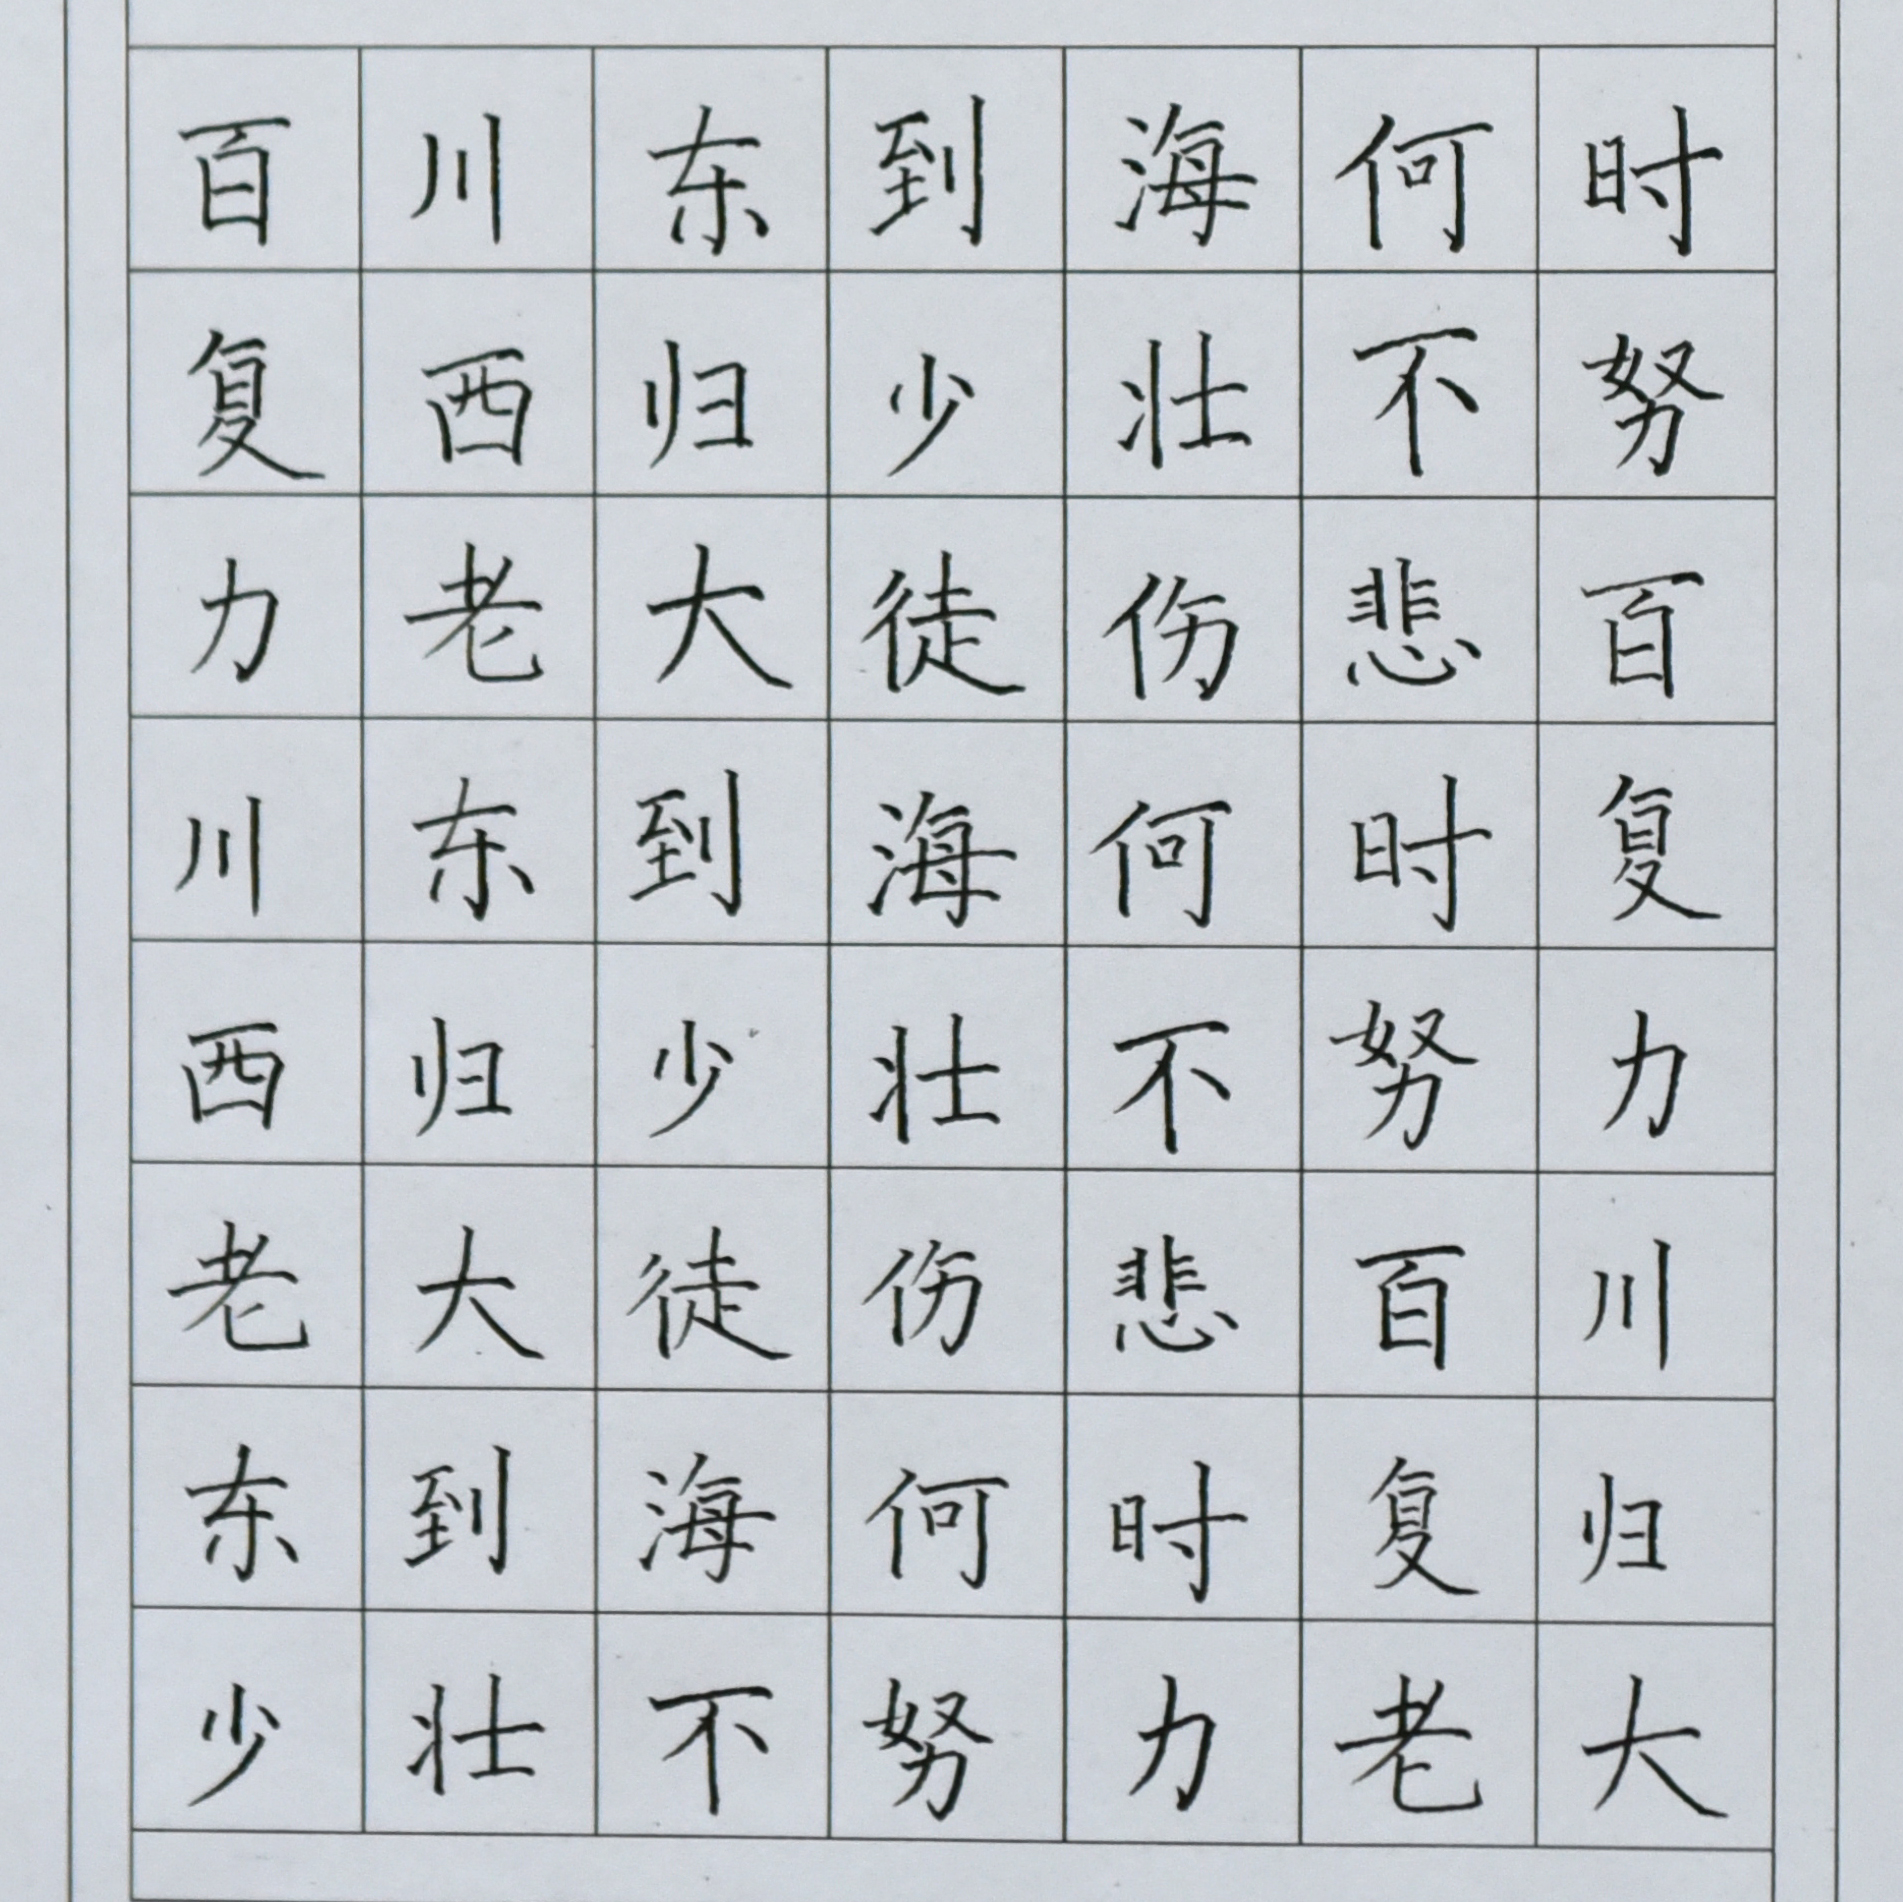 百川东到海何时
复西归少壮不努
力老大徒伤悲百
川东到海何时复
西归少壮不努力
老大徒伤悲百川
东到海何时复归
少壮不努力老大